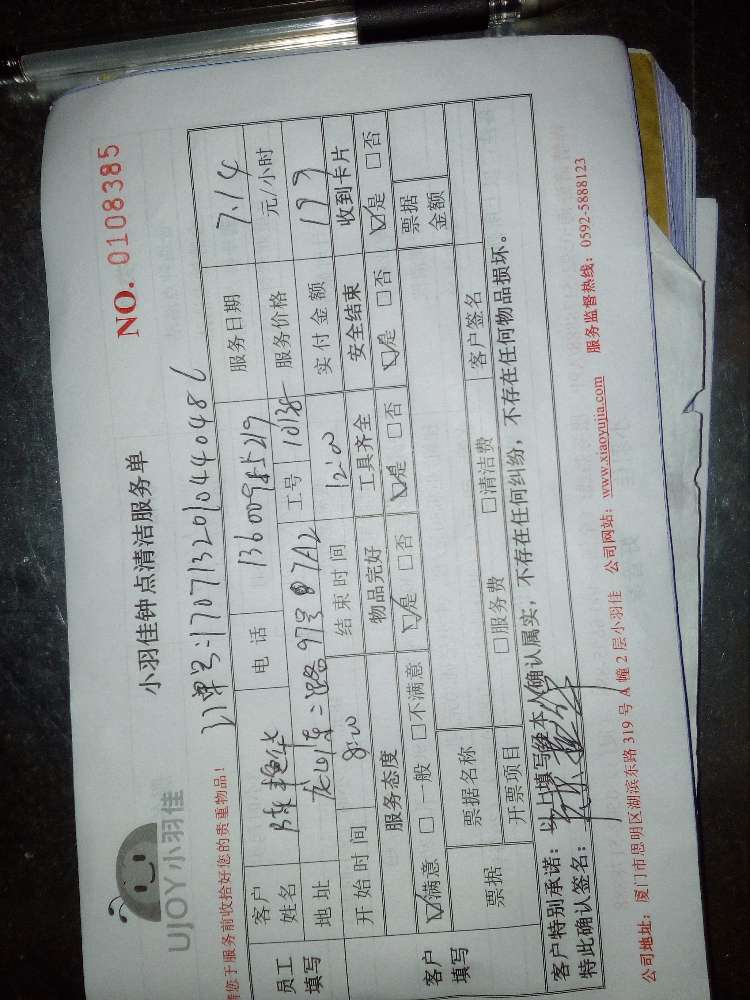 UJOY小羽佳
小羽佳钟点清洁服务单
NO. 0108385
请您于服务前收拾好您的贵重物品!
订单号:17071320104404086
员工填写
客户姓名 陈艳华 电话 服务日期 7.14
地址 龙山南二路97号 7A12 工号 10138 服务价格 元/小时
开始时间 8:00 结束时间 12:00 实付金额 199
客户填写
服务态度 物品完好 工具齐全 安全结束 收到卡片
☑满意 □一般 □不满意 ☑是 □否 ☑是 □否 ☑是 □否 ☑是 □否
票据 票据名称 票据金额
开票项目 □服务费 □清洁费 客户签名
客户特别承诺:以上填写经本人确认属实,不存在任何纠纷,不存在任何物品损坏。
特此确认签名:
公司地址:厦门市思明区湖滨东路319号A幢2层小羽佳 公司网站:www.xiaoyujia.com 服务监督热线:0592-5888123